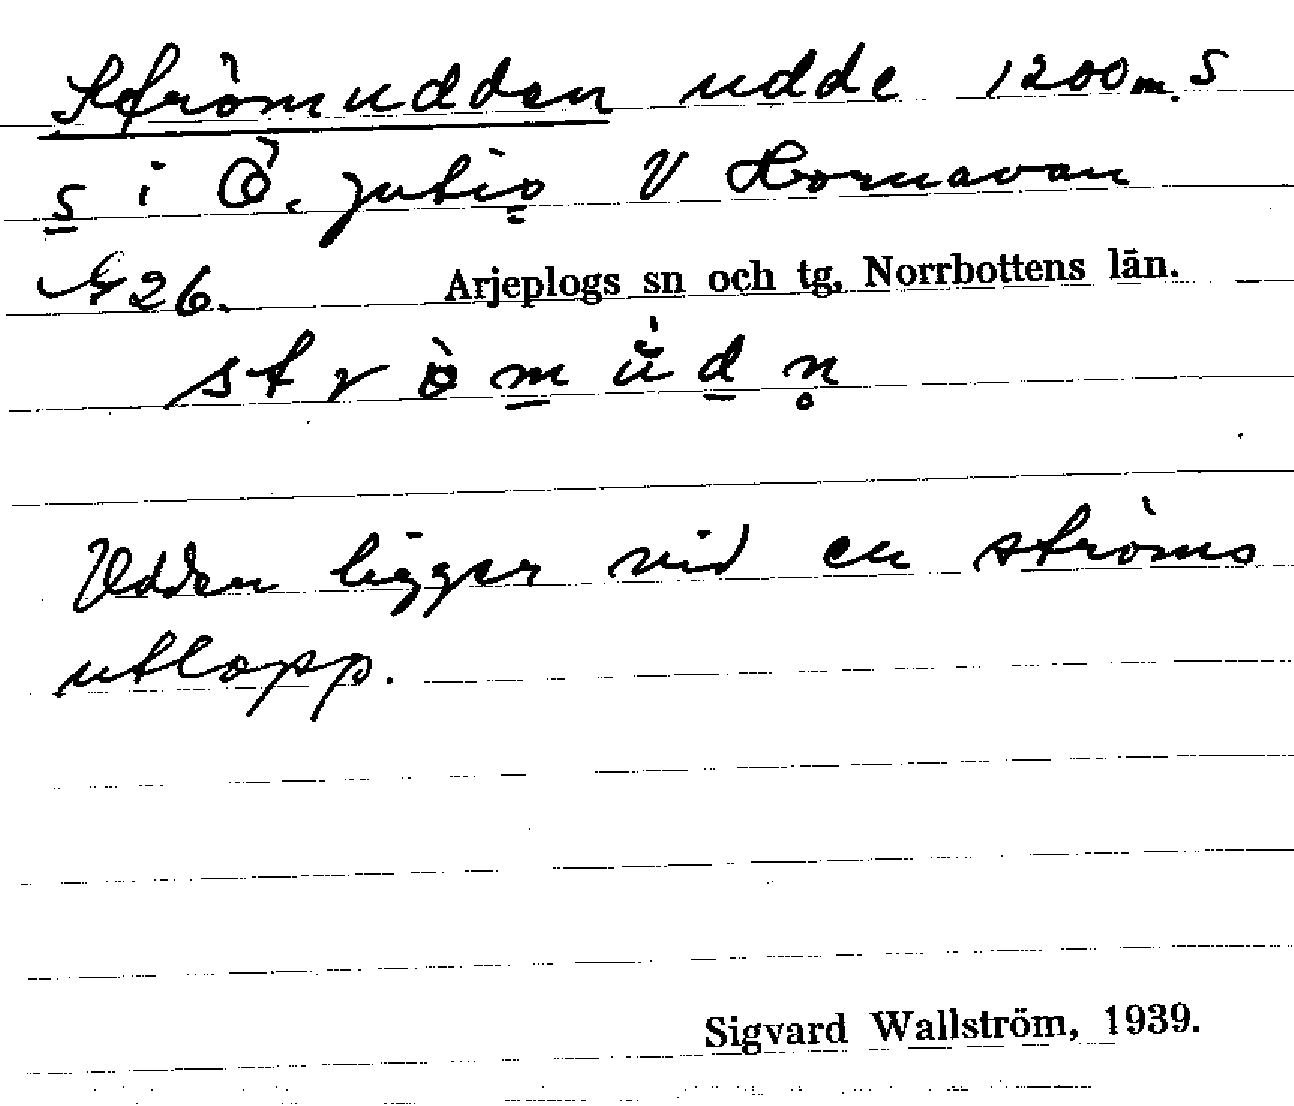 Strömudden udde 1200 m. S
s i Ö. Jutis V Hornavan
26. Arjeplogs sn och tg, Norrbottens län.
strömudn̥
Udden ligger vid en ströms
utlopp.
Sigvard Wallström, 1939.